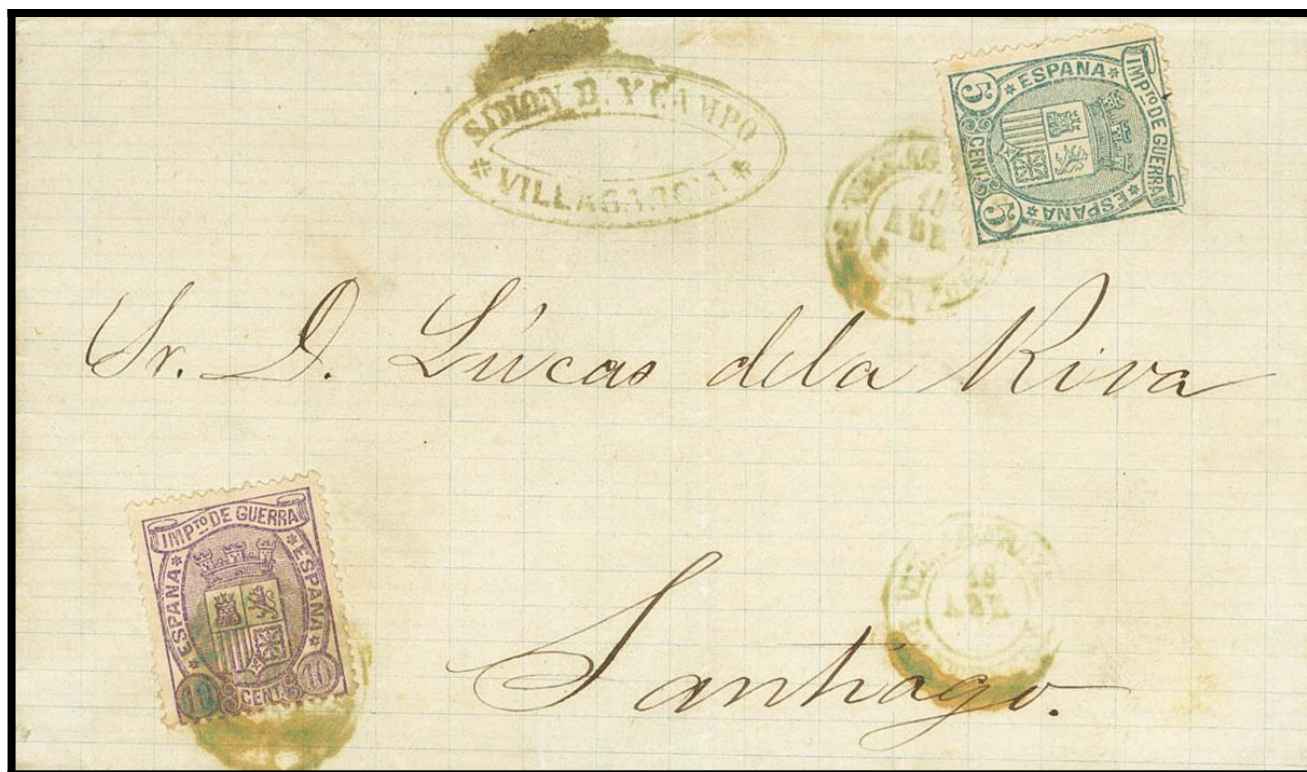 SIMON B. Y CAMPO
* VILLAGARCIA *
IMPTO DE GUERRA
* ESPANA *
* ESPANA *
5 CENTS 5
ABR
Sr. D. Lúcas dela Riva
IMPTO DE GUERRA
* ESPANA *
* ESPANA *
10 CENTS 10
ABR
Santiago.